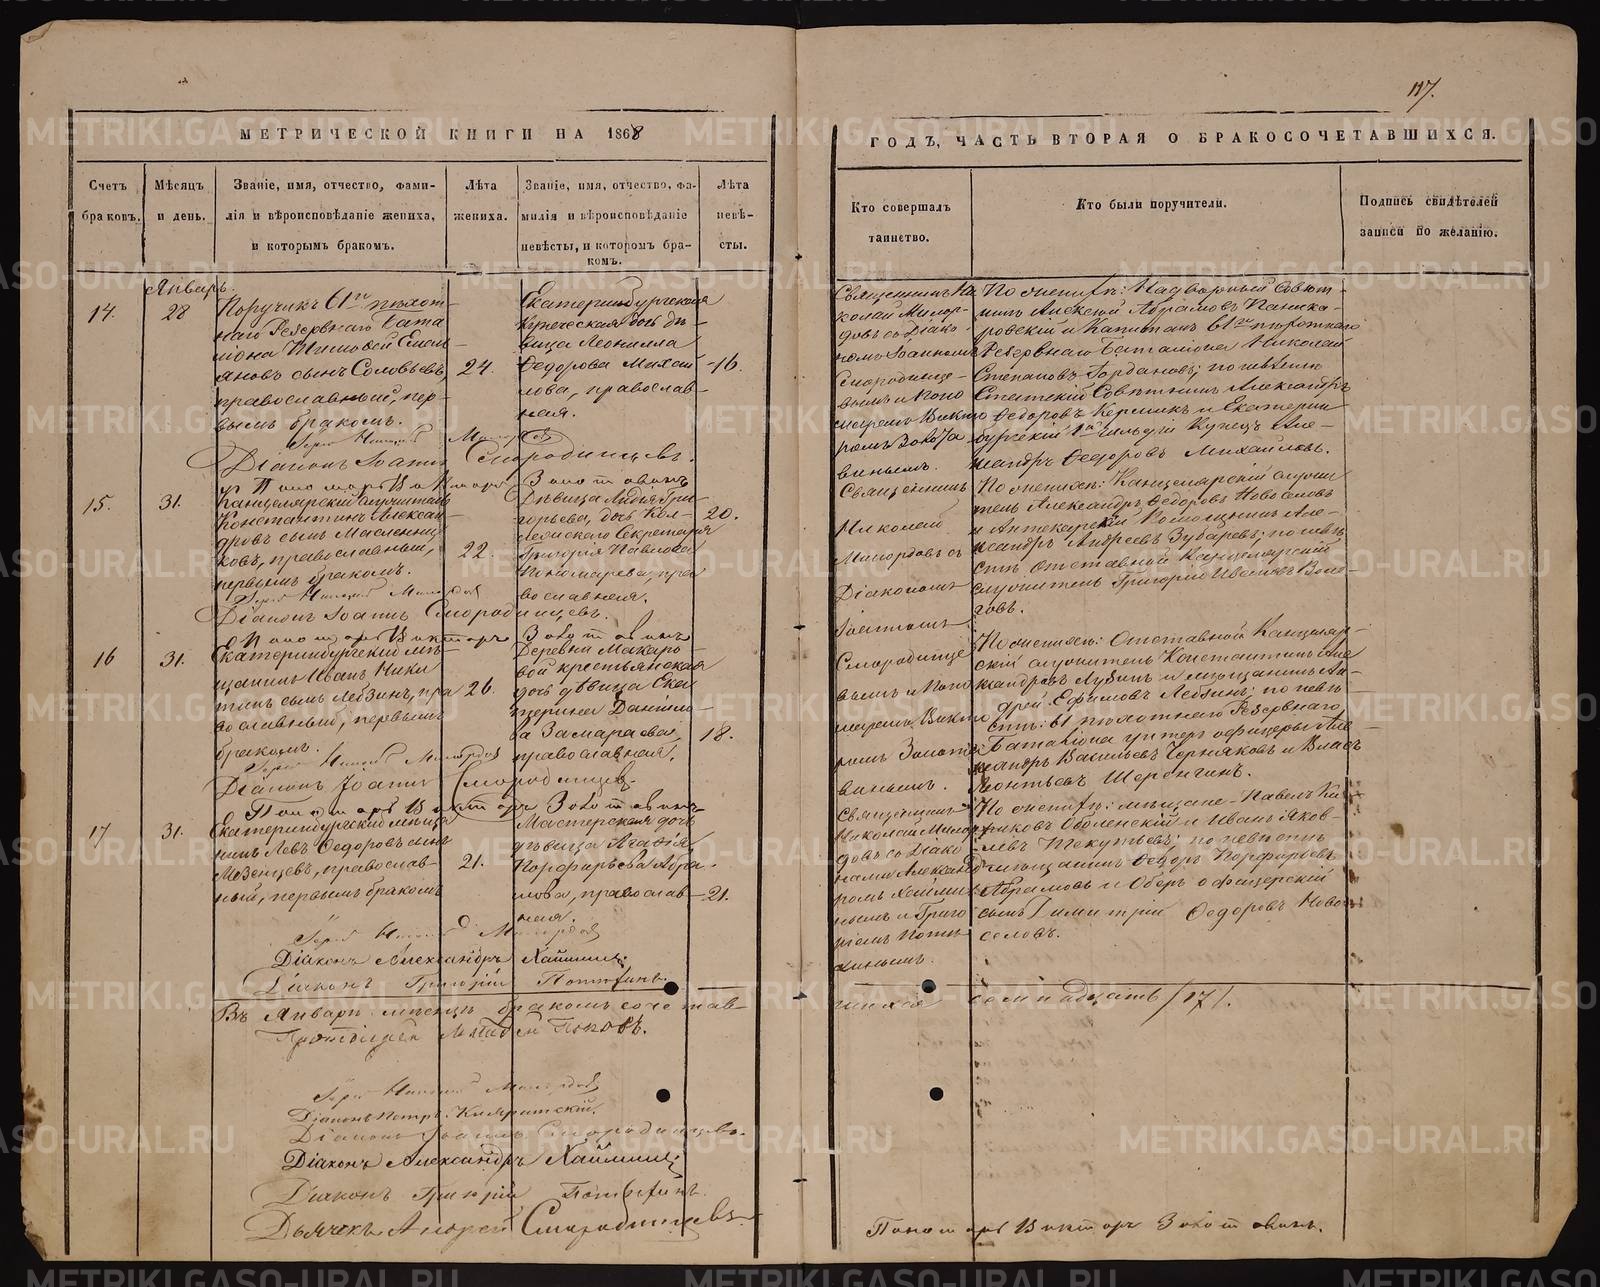 117.
МЕТРИЧЕСКОЙ КНИГИ НА 1868
ГОДЪ, ЧАСТЬ ВТОРАЯ О БРАКОСОЧЕТАВШИХСЯ.
Счетъ браковъ.
Мѣсяцъ и день.
Званіе, имя, отчество, фами-
лія и вѣроисповѣданіе жениха,
и которымъ бракомъ.
Лѣта
жениха.
Званіе, имя, отчество, фа-
милія и вѣроисповѣданіе
невѣсты, и которомъ бра-
комъ.
Лѣта
невѣ-
сты.
Кто совершалъ
таинство.
Кто были поручители.
Подпись свидѣтелей
записи по желанію.
Январь.
14.
28
Поручикъ 61го пѣхот-
наго Резервнаго Бата
ліона Тимофей Емел
ьяновъ сынъ Соловьевъ,
православный, пер-
вымъ бракомъ.
24.
Екатеринбургская
купеческая дочь дѣ-
вица Леонилла
Федорова Михай
лова, православ-
ная.
16.
Священникъ Ни
колай Милор-
довъ съ Діако
номъ Іоанномъ
Смородинце-
вымъ и Поно
маремъ Викто
ромъ Золота
винымъ.
По женихѣ: Надворный Совѣт-
никъ Алексей Абрамовъ
и Капитанъ 61го пѣхотнаго
Резервнаго Баталіона Николай
Степановъ Іордановъ; по невѣстѣ
Статскій Совѣтникъ Александръ
Федоровъ и Екатерин
бургскій 1й гильдіи Купецъ Але-
ксандръ Федоровъ Михайловъ.
Діаконъ Іоаннъ Смородинцевъ.
Пономарь Викторъ Золотавинъ
15.
31.
Канцелярскій служитель
Константинъ Алексан-
дровъ сынъ Масленни
ковъ, православный,
первымъ бракомъ.
22.
Дѣвица Лидія Гри
горьева, дочь Кол-
лежскаго Секретаря
Григорія Павлова
Пономарева, пра
вославная.
20.
Священникъ
Николай
Милордовъ съ
Діакономъ
Іоанномъ
Смородинце
вымъ и Поно
маремъ Викто
ромъ Золота
винымъ.
По женихѣ: Канцелярскій служи
тель Александръ Федоровъ Новоселовъ
и Аптекарскій Помощникъ Але-
ксандръ Андреевъ Зубаревъ; по невѣ
стѣ Отставной Канцелярскій
служитель Григорій Ивановъ Воло-
говъ.
Діаконъ Іоаннъ Смородинцевъ.
Пономарь Викторъ Золотавинъ
16
31.
Екатеринбургскій мѣ-
щанинъ Иванъ Ники
тинъ сынъ Лебзинъ, пра
вославный, первымъ
бракомъ.
26.
Деревни Макаро-
вой крестьянская
дочь дѣвица Ека
терина Данило-
ва Замараева,
православная.
18.
По женихѣ: Отставной Канцеляр-
скій служитель Константинъ Але
ксандровъ Лузинъ и мѣщанинъ Ан-
дрей Ефимовъ Лебзинъ; по невѣ
стѣ: 61 пѣхотнаго Резервнаго
Баталіона унтеръ офицеры Але
ксандръ Васильевъ Черняковъ и Власъ
Леонтьевъ Шерёнгинъ.
Діаконъ Іоаннъ Смородинцевъ.
Пономарь Викторъ Золотавинъ
17
31.
Екатеринбургскій мѣща
нинъ Левъ Федоровъ сынъ
Мезенцевъ, православ-
ный, первымъ бракомъ
21.
Мастерская дочь
дѣвица Агафія
Порфирьева Абра
мова, православ-
ная.
21.
Священникъ
Николай Милор
довъ съ Діако
нами Александ
ромъ Хаймин
нымъ и Григо
ріемъ Поте
хинымъ.
По женихѣ: мѣщане - Павелъ Ки
риковъ Оболенскій и Иванъ Яков-
левъ Текутьевъ; по невѣстѣ
мѣщанинъ Федоръ Порфирьевъ
Абрамовъ и Оберъ офицерскій
сынъ Димитрій Федоровъ Ново
селовъ.
Діаконъ Александръ Хайминъ
Діаконъ Григорій Потехинъ.
Въ Январѣ мѣсяцѣ бракомъ сочетав-
шихся семнадцать /17/.
Протоіерей Матѳей Поповъ.
Іерей Николай Милордовъ
Діаконъ Петръ
Діаконъ Іоаннъ Смородинцевъ.
Діаконъ Александръ Хайминъ
Діаконъ Григорій Потехинъ.
Дьячекъ Андрей Смородинцевъ
Пономарь Викторъ Золотавинъ.
METRIKI.GASO-URAL.RU